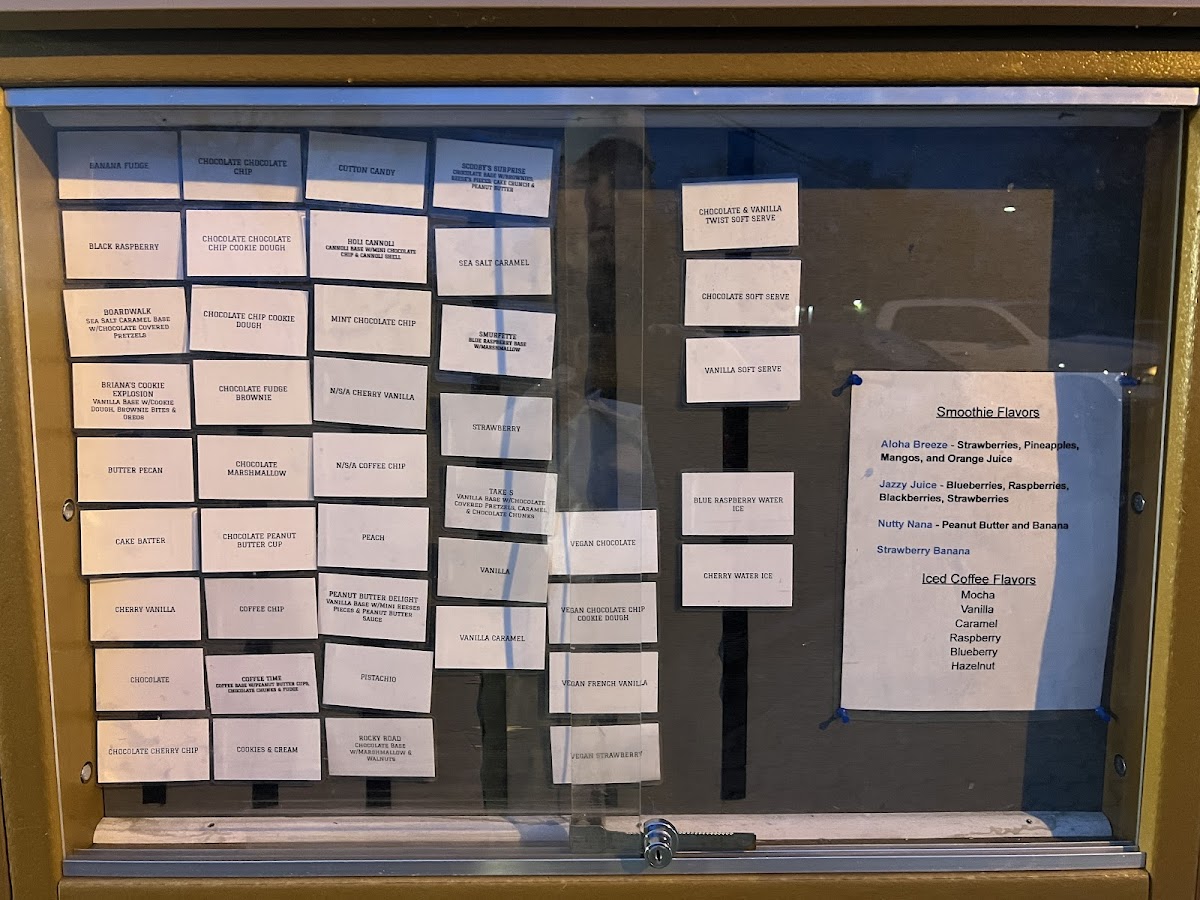 BANANA FUDGE
BLACK RASPBERRY
BOARDWALK
SEA SALT CARAMEL BASE
W/CHOCOLATE COVERED
PRETZELS
BRIANA'S COOKIE
EXPLOSION
VANILLA BASE W/COOKIE
DOUGH, BROWNIE BITES &
OREOS
BUTTER PECAN
CAKE BATTER
CHERRY VANILLA
CHOCOLATE
CHOCOLATE CHERRY CHIP
CHOCOLATE CHOCOLATE
CHIP
CHOCOLATE CHOCOLATE
CHIP COOKIE DOUGH
CHOCOLATE CHIP COOKIE
DOUGH
CHOCOLATE FUDGE
BROWNIE
CHOCOLATE
MARSHMALLOW
CHOCOLATE PEANUT
BUTTER CUP
COFFEE CHIP
COFFEE TIME
COFFEE BASE W/PEANUT BUTTER CUPS,
CHOCOLATE CHUNKS & FUDGE
COOKIES & CREAM
COTTON CANDY
HOLI CANNOLI
CANNOLI BASE W/MINI CHOCOLATE
CHIP & CANNOLI SHELL
MINT CHOCOLATE CHIP
N/S/A CHERRY VANILLA
N/S/A COFFEE CHIP
PEACH
PEANUT BUTTER DELIGHT
VANILLA BASE W/MINI REESES
PIECES & PEANUT BUTTER
SAUCE
PISTACHIO
ROCKY ROAD
CHOCOLATE BASE
W/MARSHMALLOW &
WALNUTS
SCOOBY'S SURPRISE
CHOCOLATE BASE W/BROWNIES,
REESE'S PIECES, CAKE CRUNCH &
PEANUT BUTTER
SEA SALT CARAMEL
SMURFETTE
BLUE RASPBERRY BASE
W/MARSHMALLOW
STRAWBERRY
TAKE 5
VANILLA BASE W/CHOCOLATE
COVERED PRETZELS, CARAMEL
& CHOCOLATE CHUNKS
VANILLA
VANILLA CARAMEL
VEGAN CHOCOLATE
VEGAN CHOCOLATE CHIP
COOKIE DOUGH
VEGAN FRENCH VANILLA
VEGAN STRAWBERRY
CHOCOLATE & VANILLA
TWIST SOFT SERVE
CHOCOLATE SOFT SERVE
VANILLA SOFT SERVE
BLUE RASPBERRY WATER
ICE
CHERRY WATER ICE
Smoothie Flavors
Aloha Breeze - Strawberries, Pineapples,
Mangos, and Orange Juice
Jazzy Juice - Blueberries, Raspberries,
Blackberries, Strawberries
Nutty Nana - Peanut Butter and Banana
Strawberry Banana
Iced Coffee Flavors
Mocha
Vanilla
Caramel
Raspberry
Blueberry
Hazelnut